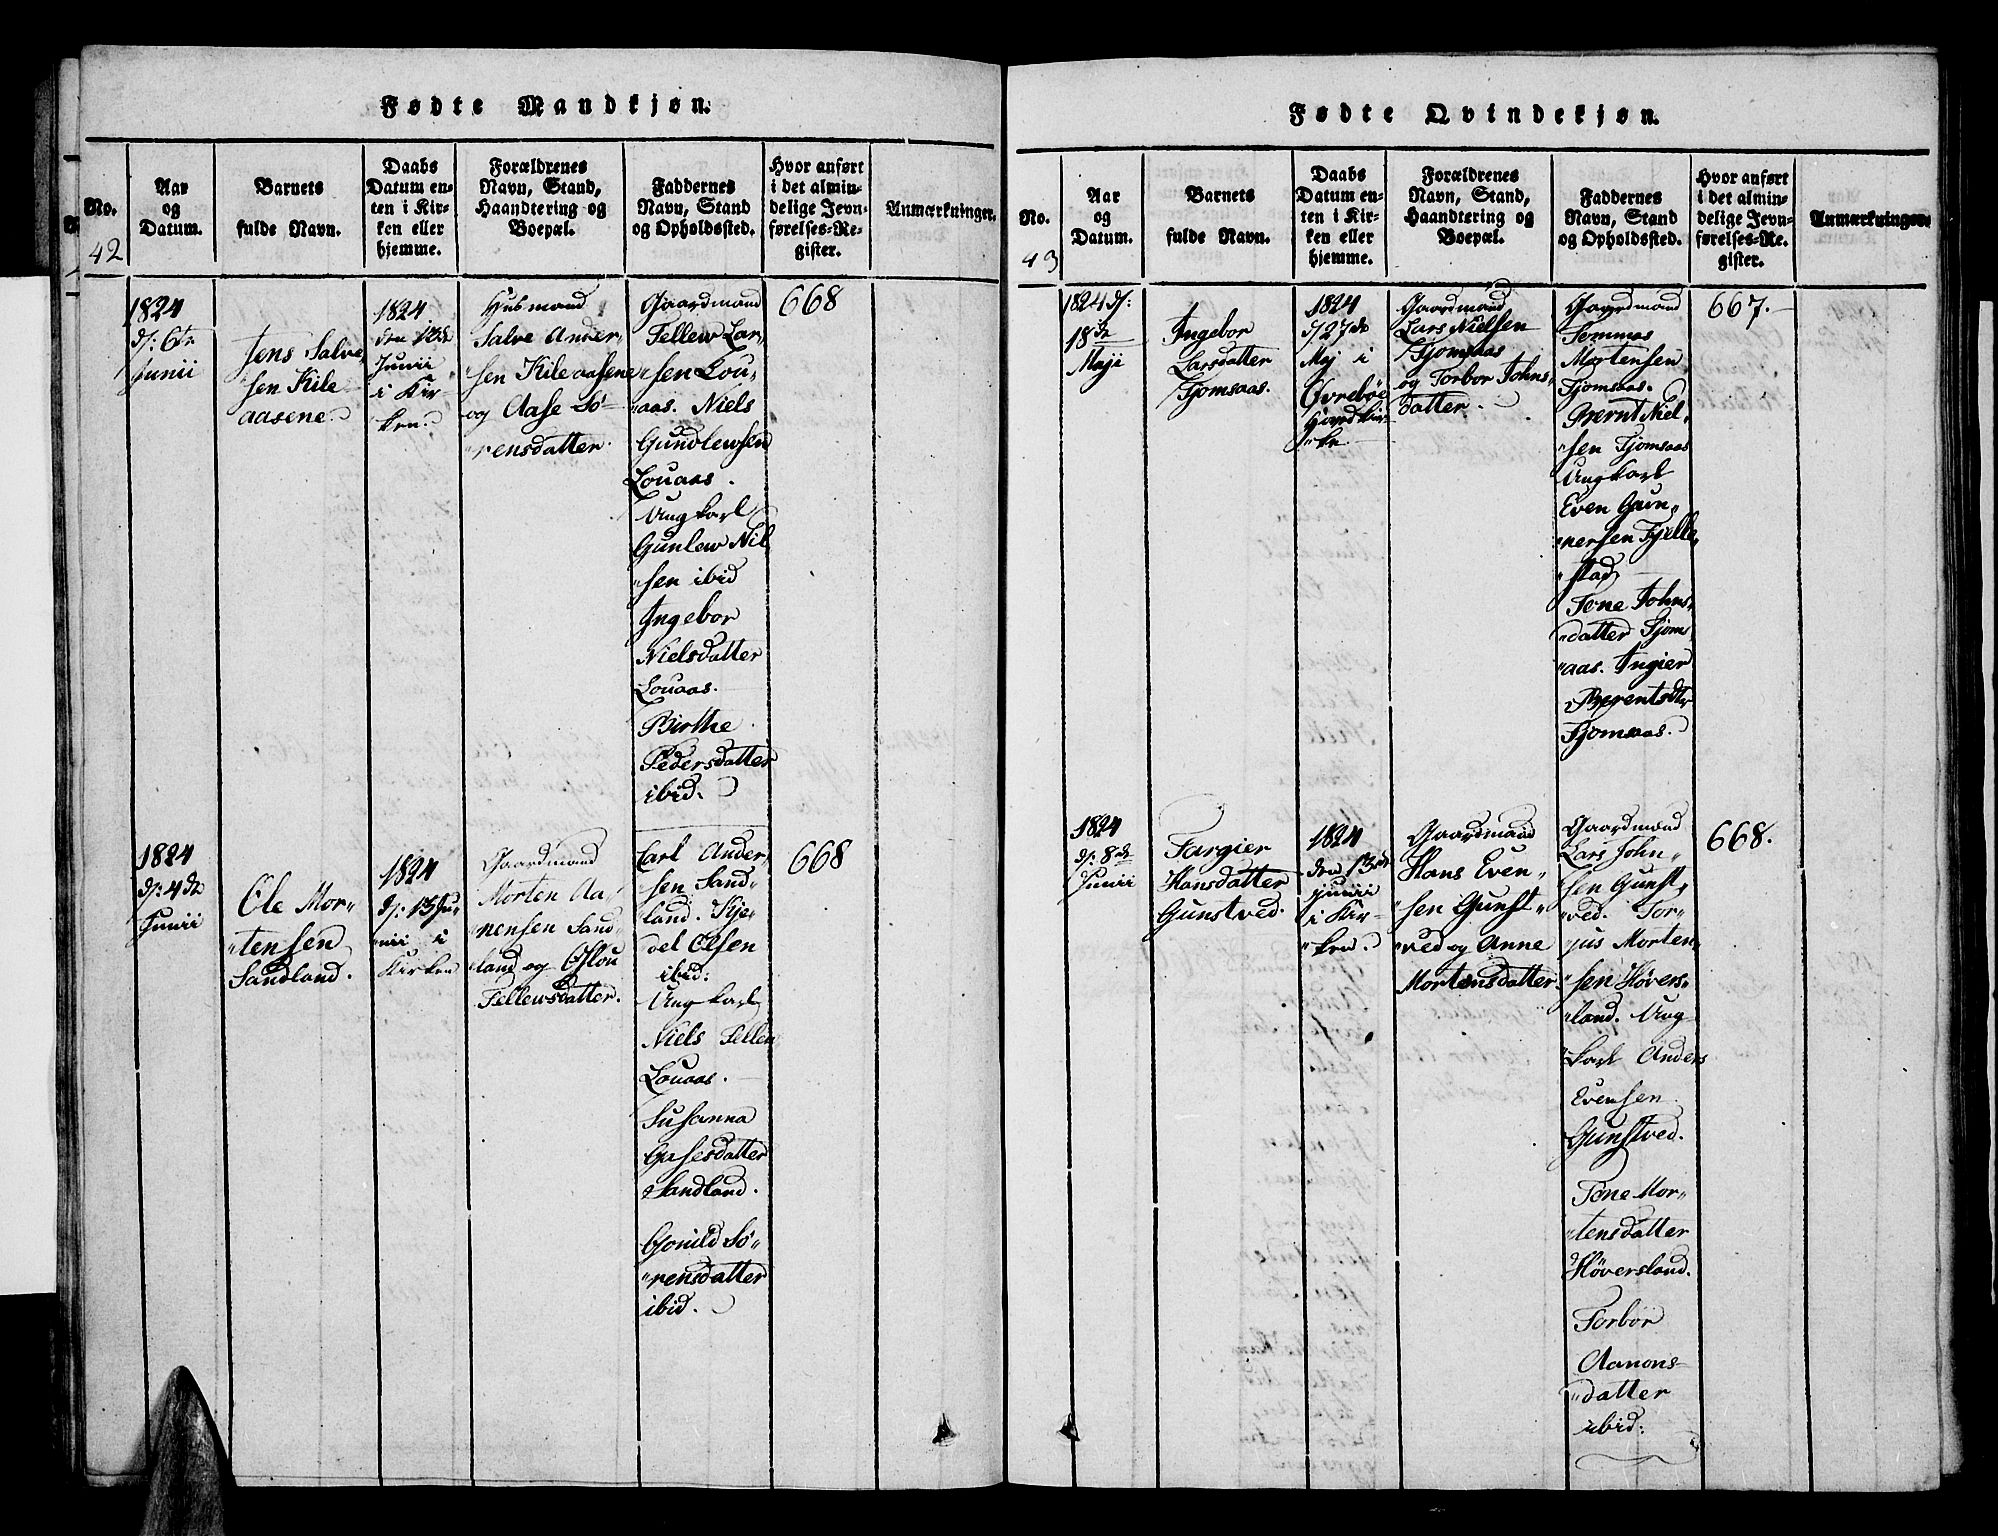 Fødte Mandkjøn.
No.
42
Aar
og
Datum.
Barnets
fulde Navn.
Daabs
Datum en-
ten i Kir-
ken eller
hjemme.
Forældrenes
Navn, Stand,
Haandtering og
Boepæl.
Faddernes
Navn, Stand
og Opholdssted.
Hvor anført
i det almin-
delige Jevn-
førelses-Re-
gister.
Anmærkninger.
1824
d: 6te
Junii
Jens Salve
sen Kile
aasene.
1824.
den 13de
Junii
i Kir
ken.
Husmand
Salve Ander
sen Kile aasene
og Aase Sö-
rensdatter.
Gaardmand
Fellew Lar,
sen Lou,
aas. Niels
Gundlewsen
Louaas.
Ungkarl
Gunlew Nil
sen ibid
Ingebor
Nielsdatter
Louaas.
Birthe
Pedersdatter
ibid.
668
1824
d: 4de
Junii
Ole Mor-
tensen
Sandland.
1824
d: 13 Ju-
nii i
Kirken
Gaardmand
Morten Aa-
nensen Sand
land og Oslou
Fellewsdatter.
Carl Ander,
sen Sand-
land. Kje-
del Olsen
ibid:
Ungkarl
Niels Fellew
Louaas.
Susanna
Gasesdatter
Sandland.
Gonild Sö-
rensdatter
ibid.
668
Fødte Qvindekjøn.
No.
43
Aar
og
Datum.
Barnets
fulde Navn.
Daabs
Datum en-
ten i Kir-
ken eller
hjemme.
Forældrenes
Navn, Stand,
Haandtering og
Boepæl.
Faddernes
Navn, Stand
og Opholdssted.
Hvor anført
i det almin-
delige Jevn-
førelses-Re-
gister.
Anmærkninger.
1824 d:
18de
Maji
Ingebor
Larsdatter
Tjomsaas.
1824
d 27de
Maj i
Övreböe
Hovedkir
ke
Gaardmand
Lars Nielsen
Tjomsaas
og Torbor Johns-
datter.
Gaardmand
Temmas
Mortensen
Tjomsaas.
Bernt Niel-
sen Tjomsaas
Ungkarl
Even Gun-
nersen Fjelle-
stad
Tone Johns-
datter Tjoms
aas. Ingier
Berentsdtr
Tjomsaas.
667.
1824
d: 8de
Junii
Targier
Hansdatter
Gunstved.
1824
den 13de
Junii
i Kir-
ken.
Gaardmand
Hans Even-
sen Gunst-
ved og Anne
Mortensdatter.
Gaardmand
Lars John-
sen Gunst,
ved. Tor-
jus Morten,
sen Höver-
land. Ung-
karl Anders
Evensen
Gunstved.
Tone Mor-
tensdatter
Höversland.
Torbör
Aanons-
datter
ibid:
668.